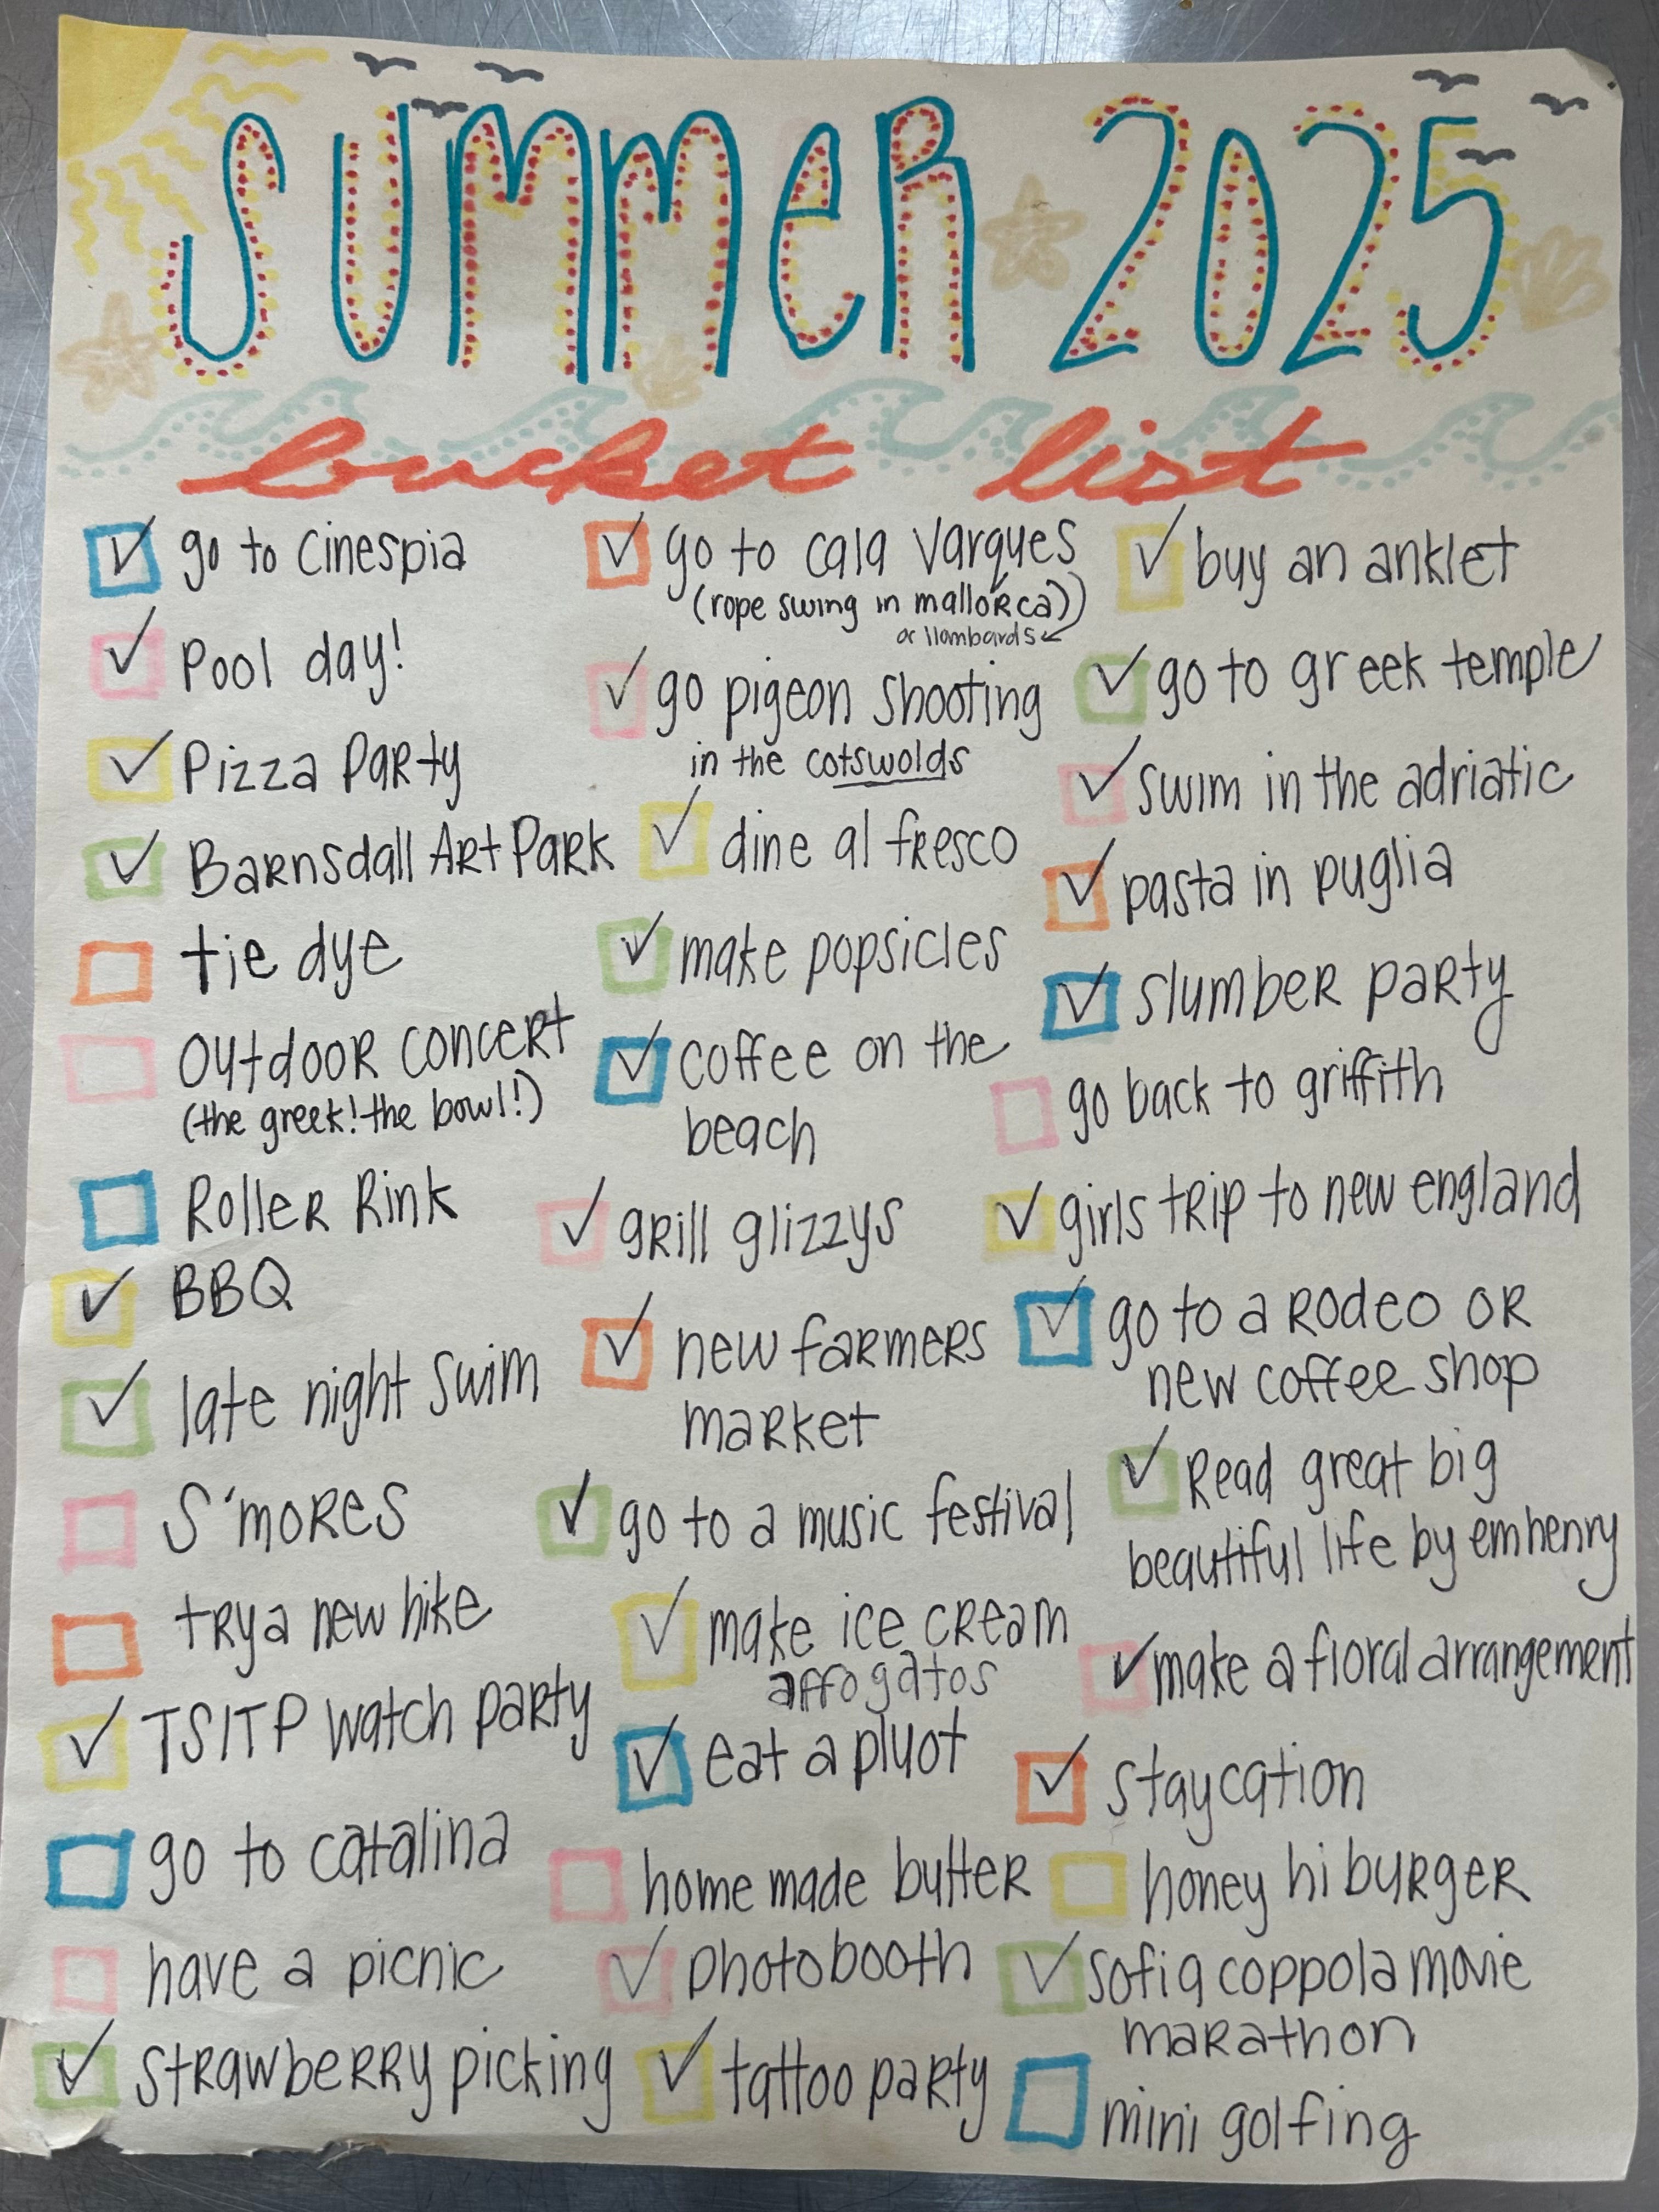 SUMMER 2025
bucket list
go to Cinespia
Pool day!
Pizza Party
Barnsdall Art Park
tie dye
Outdoor concert
(the greek! the bowl!)
Roller Rink
BBQ
late night swim
S'mores
try a new hike
TSITP watch party
go to catalina
have a picnic
strawberry picking
go to cala varques
(rope swing in mallorca)
or llombards
go pigeon shooting
in the cotswolds
dine al fresco
make popsicles
coffee on the
beach
grill glizzys
new farmers
market
go to a music festival
make ice cream
affogatos
eat a pluot
home made butter
photobooth
tattoo party
buy an anklet
go to greek temple
swim in the adriatic
pasta in puglia
slumber party
go back to griffith
girls trip to new england
go to a rodeo or
new coffee shop
Read great big
beautiful life by em henry
make a floral arrangement
staycation
honey hi burger
sofia coppola movie
marathon
mini golfing